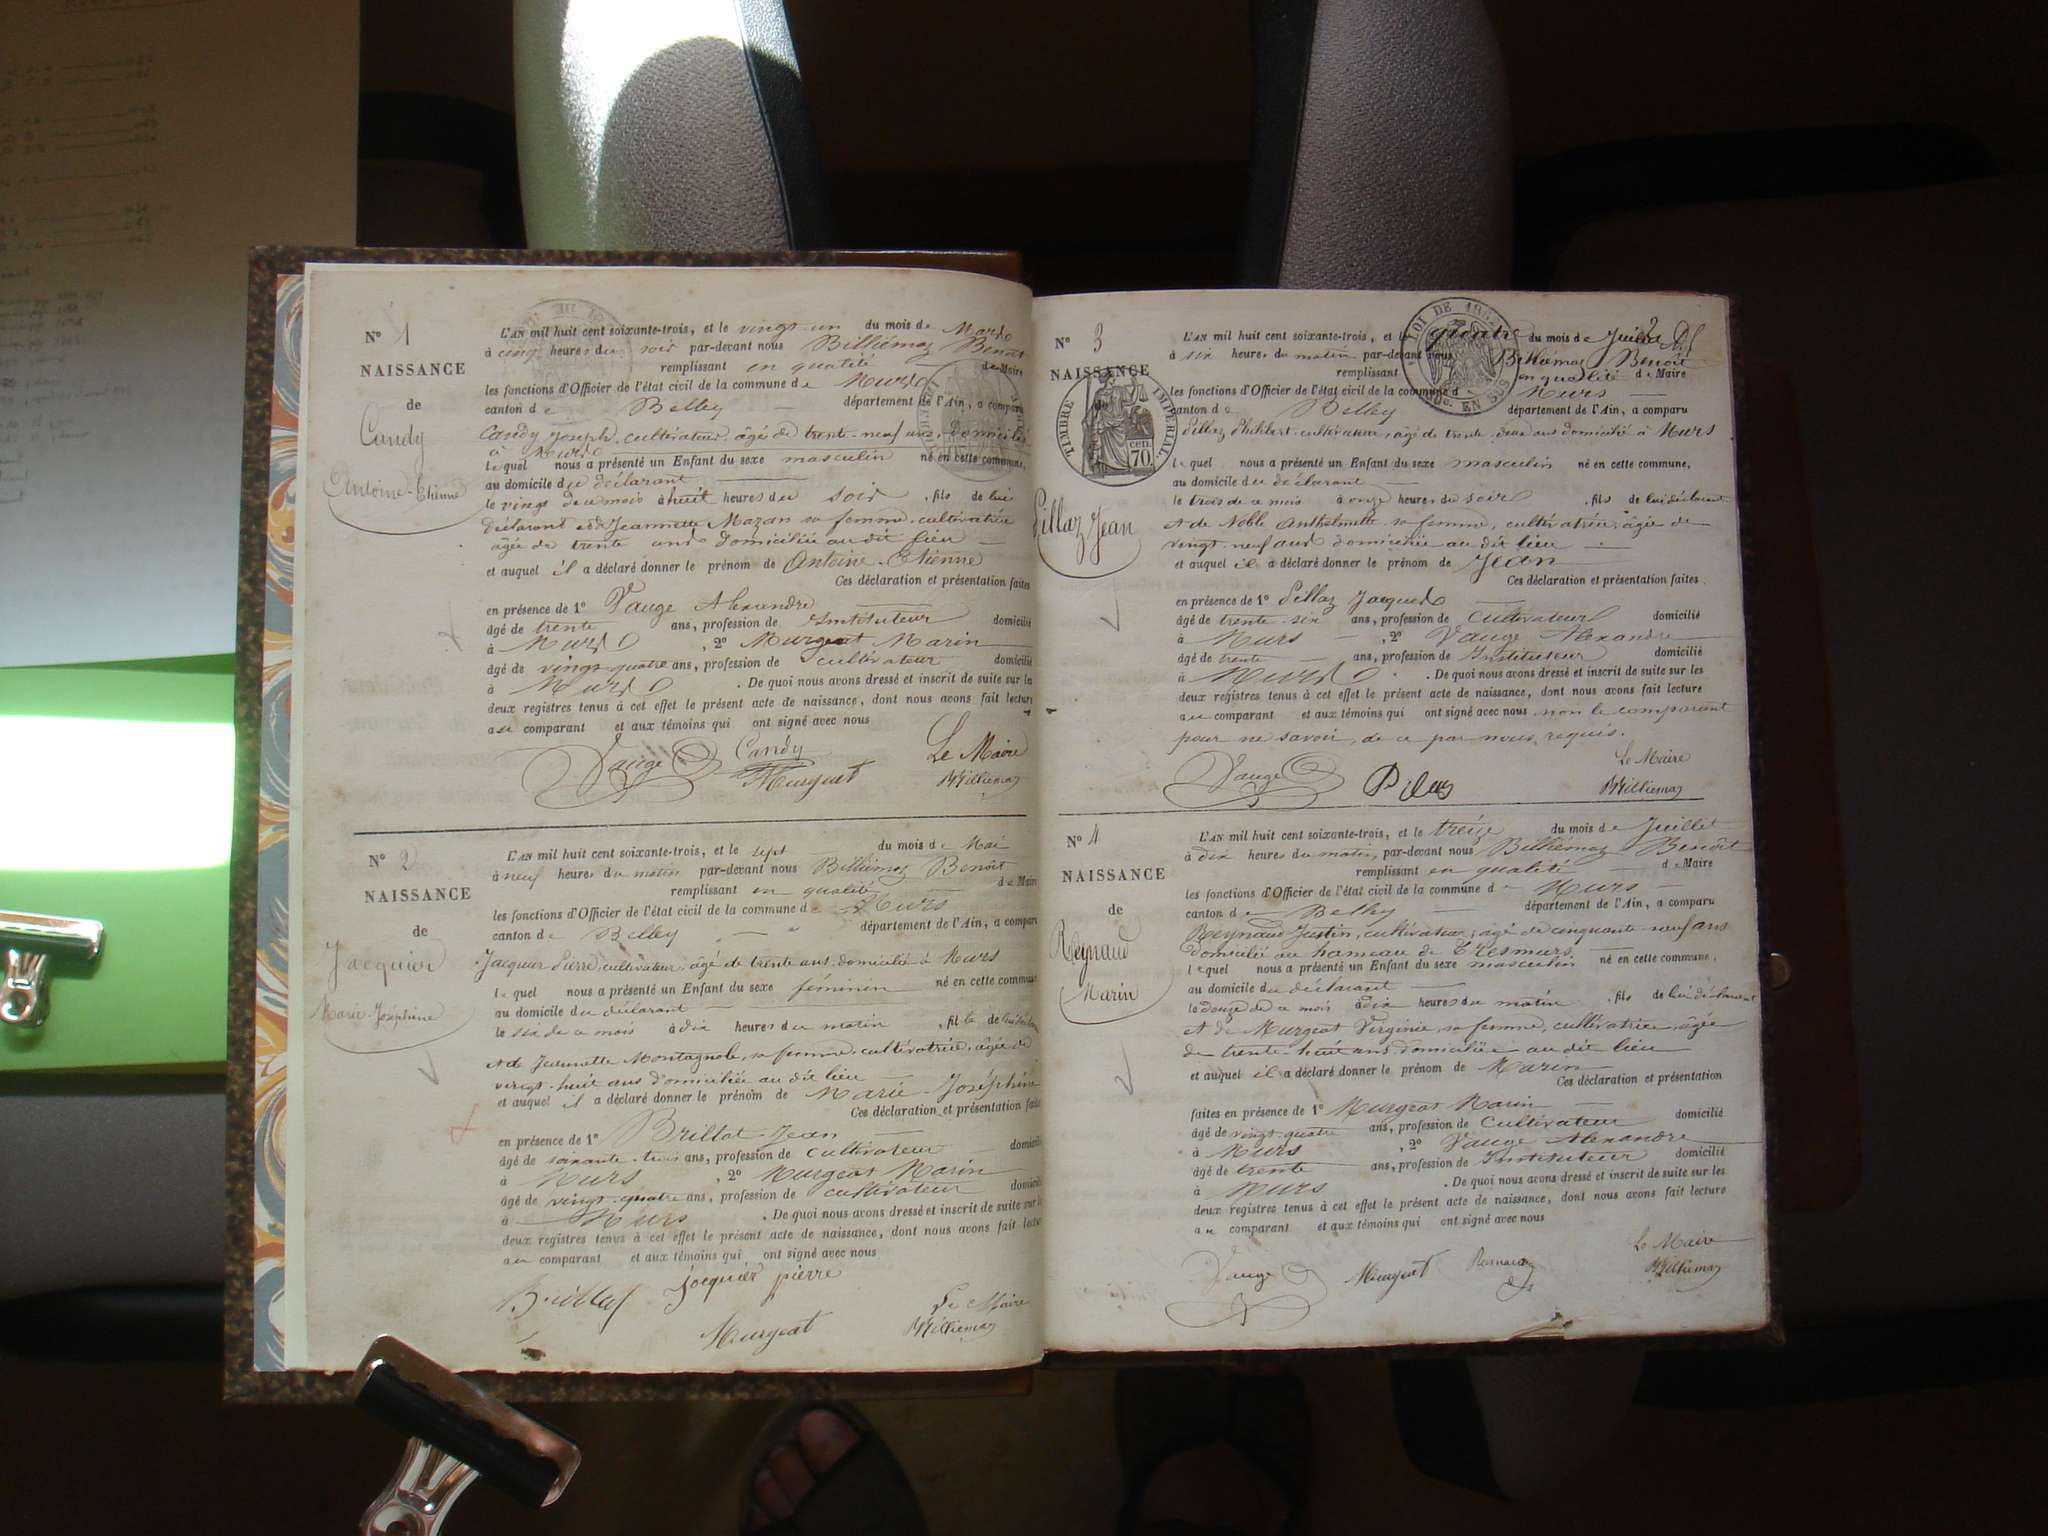 N° 1
NAISSANCE
de
Candy
Antoine-Etienne
L'AN mil huit cent soixante-trois, et le vingt-un du mois de Mars
à cinq heures du soir par-devant nous Billiémaz Benoît
remplissant en qualité de Maire
les fonctions d'Officier de l'état civil de la commune de Murs
canton de Belley département de l'Ain, a comparu
Candy Joseph, cultivateur, âgé de trente-neuf ans, domicilié
à Murs
lequel nous a présenté un Enfant du sexe masculin né en cette commune,
au domicile du déclarant
le vingt de ce mois à huit heures du soir, fils de lui
déclarant et de Jeannette Mazan sa femme, cultivatrice
âgée de trente ans domiciliée au dit lieu
et auquel il a déclaré donner le prénom de Antoine-Etienne
Ces déclaration et présentation faites
en présence de 1° Vauge Alexandre
âgé de trente ans, profession de Instituteur domicilié
à Murs, 2° Murgeat Marin
âgé de vingt-quatre ans, profession de cultivateur domicilié
à Murs. De quoi nous avons dressé et inscrit de suite sur les
deux registres tenus à cet effet le présent acte de naissance, dont nous avons fait lecture
au comparant et aux témoins qui ont signé avec nous
Vauge Candy Le Maire
Murgeat BBilliemaz
N° 2
NAISSANCE
de
Jacquier
Marie-Joséphine
L'AN mil huit cent soixante-trois, et le sept du mois de Mai
à neuf heures du matin par-devant nous Billiémaz Benoît
remplissant en qualité de Maire
les fonctions d'Officier de l'état civil de la commune de Murs
canton de Belley département de l'Ain, a comparu
Jacquier Pierre, cultivateur, âgé de trente ans, domicilié à Murs
lequel nous a présenté un Enfant du sexe féminin né en cette commune
au domicile du déclarant
le six de ce mois à dix heures du matin, fille de lui déclarant
et de Jeannette Montagnole, sa femme, cultivatrice, âgée de
vingt-huit ans domiciliée au dit lieu
et auquel il a déclaré donner le prénom de Marie-Joséphine
Ces déclaration et présentation faites
en présence de 1° Brillat Jean
âgé de soixante-trois ans, profession de cultivateur domicilié
à Murs, 2° Murgeat Marin
âgé de vingt-quatre ans, profession de cultivateur domicilié
à Murs. De quoi nous avons dressé et inscrit de suite sur les
deux registres tenus à cet effet le présent acte de naissance, dont nous avons fait lecture
au comparant et aux témoins qui ont signé avec nous
Brillat jacquier pierre Le Maire
Murgeat BBilliemaz
LOI DE 1862
EN SUS
N° 3
NAISSANCE
TIMBRE IMPERIAL
cen.
70
Pillaz Jean
L'AN mil huit cent soixante-trois, et le quatre du mois de Juillet
à six heures du matin par-devant nous Billiémaz Benoît
remplissant en qualité de Maire
les fonctions d'Officier de l'état civil de la commune de Murs
canton de Belley département de l'Ain, a comparu
Pillaz Philibert, cultivateur, âgé de trente-deux ans domicilié à Murs
lequel nous a présenté un Enfant du sexe masculin né en cette commune,
au domicile du déclarant
le trois de ce mois à onze heures du soir, fils de lui déclarant
et de Noble Anthelmette sa femme, cultivatrice, âgée de
vingt-neuf ans domiciliée au dit lieu
et auquel il a déclaré donner le prénom de Jean
Ces déclaration et présentation faites
en présence de 1° Pillaz Jacques
âgé de trente-six ans, profession de cultivateur domicilié
à Murs, 2° Vauge Alexandre
âgé de trente ans, profession de Instituteur domicilié
à Murs. De quoi nous avons dressé et inscrit de suite sur les
deux registres tenus à cet effet le présent acte de naissance, dont nous avons fait lecture
au comparant et aux témoins qui ont signé avec nous non le comparant
pour ne savoir, de ce par nous requis.
Vauge Le Maire
BBilliemaz
N° 4
NAISSANCE
de
Reynaud
Marin
L'AN mil huit cent soixante-trois, et le treize du mois de Juillet
à dix heures du matin, par-devant nous Billiémaz Benoît
remplissant en qualité de Maire
les fonctions d'Officier de l'état civil de la commune de Murs
canton de Belley département de l'Ain, a comparu
Reynaud Justin, cultivateur, âgé de cinquante-neuf ans
domicilié au hameau de Tresmurs
lequel nous a présenté un Enfant du sexe masculin né en cette commune,
au domicile du déclarant
le douze de ce mois à dix heures du matin, fils de lui déclarant
et de Murgeat Virginie, sa femme, cultivatrice, âgée
de trente-huit ans domiciliée au dit lieu
et auquel il a déclaré donner le prénom de Marin
Ces déclaration et présentation
faites en présence de 1° Murgeat Marin
âgé de vingt-quatre ans, profession de cultivateur domicilié
à Murs, 2° Vauge Alexandre
âgé de trente ans, profession de Instituteur domicilié
à Murs. De quoi nous avons dressé et inscrit de suite sur les
deux registres tenus à cet effet le présent acte de naissance, dont nous avons fait lecture
au comparant et aux témoins qui ont signé avec nous
Vauge Murgeat Le Maire
BBilliemaz